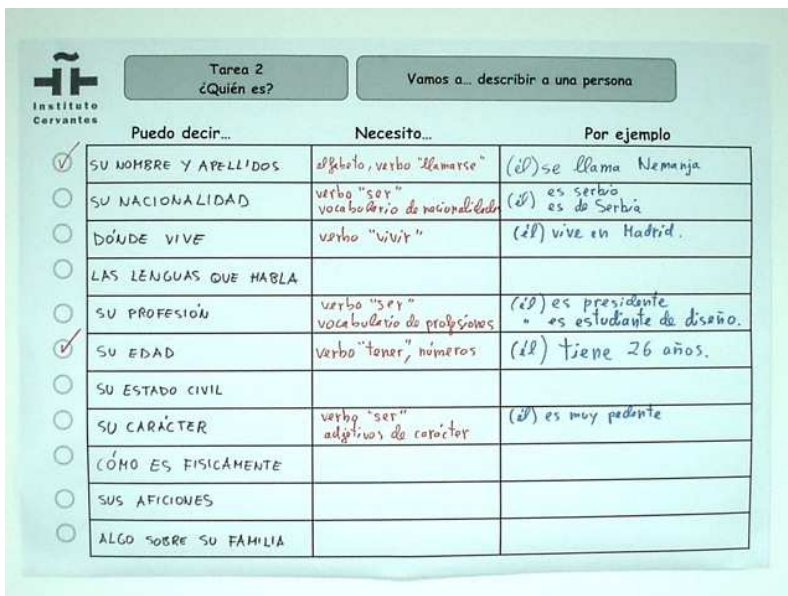 Instituto
Cervantes
Tarea 2
¿Quién es?
Vamos a... describir a una persona
Puedo decir...
Necesito...
Por ejemplo
SU NOMBRE Y APELLIDOS
alfabeto, verbo "llamarse"
(él) se llama Nemanja
SU NACIONALIDAD
verbo "ser"
vocabulario de nacionalidades
(él) es serbio
es de Serbia
DÓNDE VIVE
verbo "vivir"
(él) vive en Madrid.
LAS LENGUAS QUE HABLA
SU PROFESIÓN
verbo "ser"
vocabulario de profesiones
(él) es presidente
" es estudiante de diseño.
SU EDAD
verbo "tener", números
(él) tiene 26 años.
SU ESTADO CIVIL
SU CARÁCTER
verbo "ser"
adjetivos de carácter
(él) es muy pedante
CÓMO ES FISICAMENTE
SUS AFICIONES
ALGO SOBRE SU FAMILIA